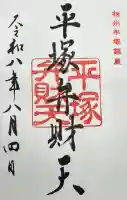 相州平塚鎮座
平塚弁財天
平塚
弁財天
令和八年八月四日